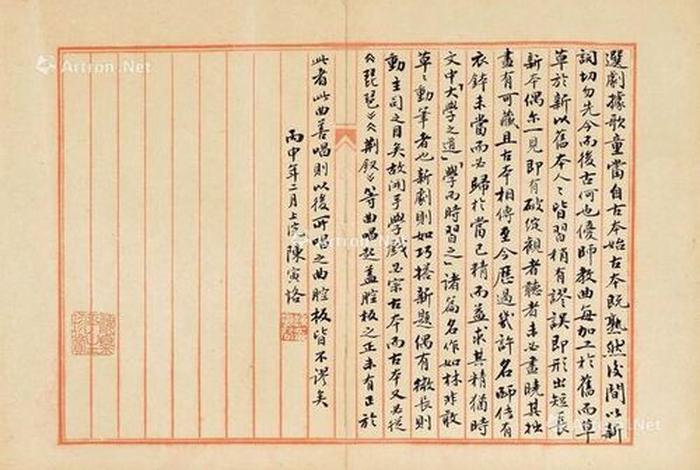 選劇據歌童當自古本始古本既熟然後間以新
詞切勿先今而後古何也優師教曲每加工於舊而草
草於新以舊本人々皆習稍有謬誤即形出短長
新本偶尔一見即有破綻觀者聽者未必盡曉其拙
盡有可藏且古本相傳至今歷過幾許名師傳有
衣鉢未當而必歸於當已精而益求其精猶時
文中「大學之道」「學而時習之」諸篇名作如林非敢
草々動筆者也新劇則如巧搭新題偶有微長則
動主司之目矣故開手學戲必宗古本而古本又必從
《琵琶》《荊釵》等曲唱起蓋腔板之正未有正於
此者此曲善唱則以後所唱之曲腔板皆不謬矣
丙申年二月上浣陳寅恪
Artron.Net
Artron.Net